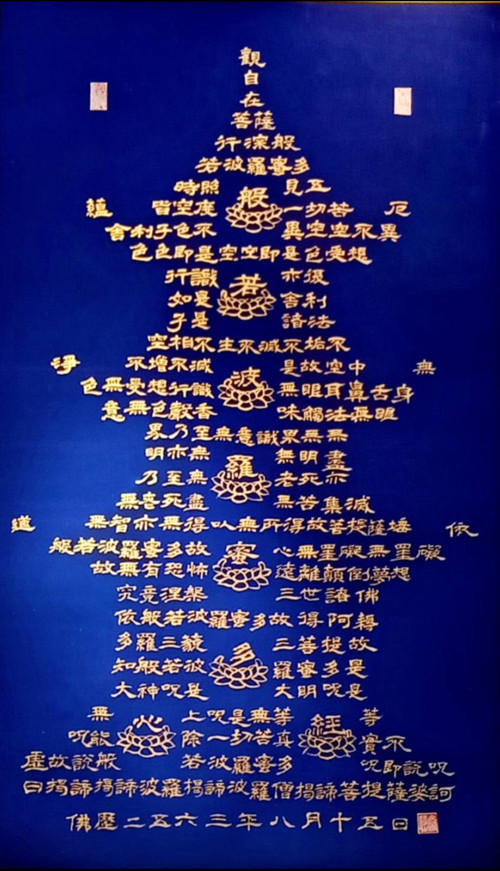 觀
自
在
菩薩
行深般
若波羅蜜多
時照 見五
蘊 皆空度 般 一切苦 厄
舍利子色不 異空空不異
色色即是空空即是色受想
行識 亦復
如是 若 舍利
子是 諸法
空相不生不滅不垢不
淨 不增不減 是故空中 無
色無受想行識 波 無眼耳鼻舌身
意無色聲香 味觸法無眼
界乃至無意識界無無
明亦無 無明盡
乃至無 羅 老死亦
無老死盡 無苦集滅
道 無智亦無得以無所得故菩提薩埵 依
般若波羅蜜多故 蜜 心無罣礙無罣礙
故無有恐怖 遠離顛倒夢想
究竟涅槃 三世諸佛
依般若波羅蜜多故得阿耨
多羅三藐 三菩提故
知般若波 多 羅蜜多是
大神咒是 大明咒是
無 上咒是無等 等
咒能 心 除一切苦真 經 實不
虛故說般 若波羅蜜多 咒即說咒
曰揭諦揭諦波羅揭諦波羅僧揭諦菩提薩婆訶
佛歷二五六三年八月十五日